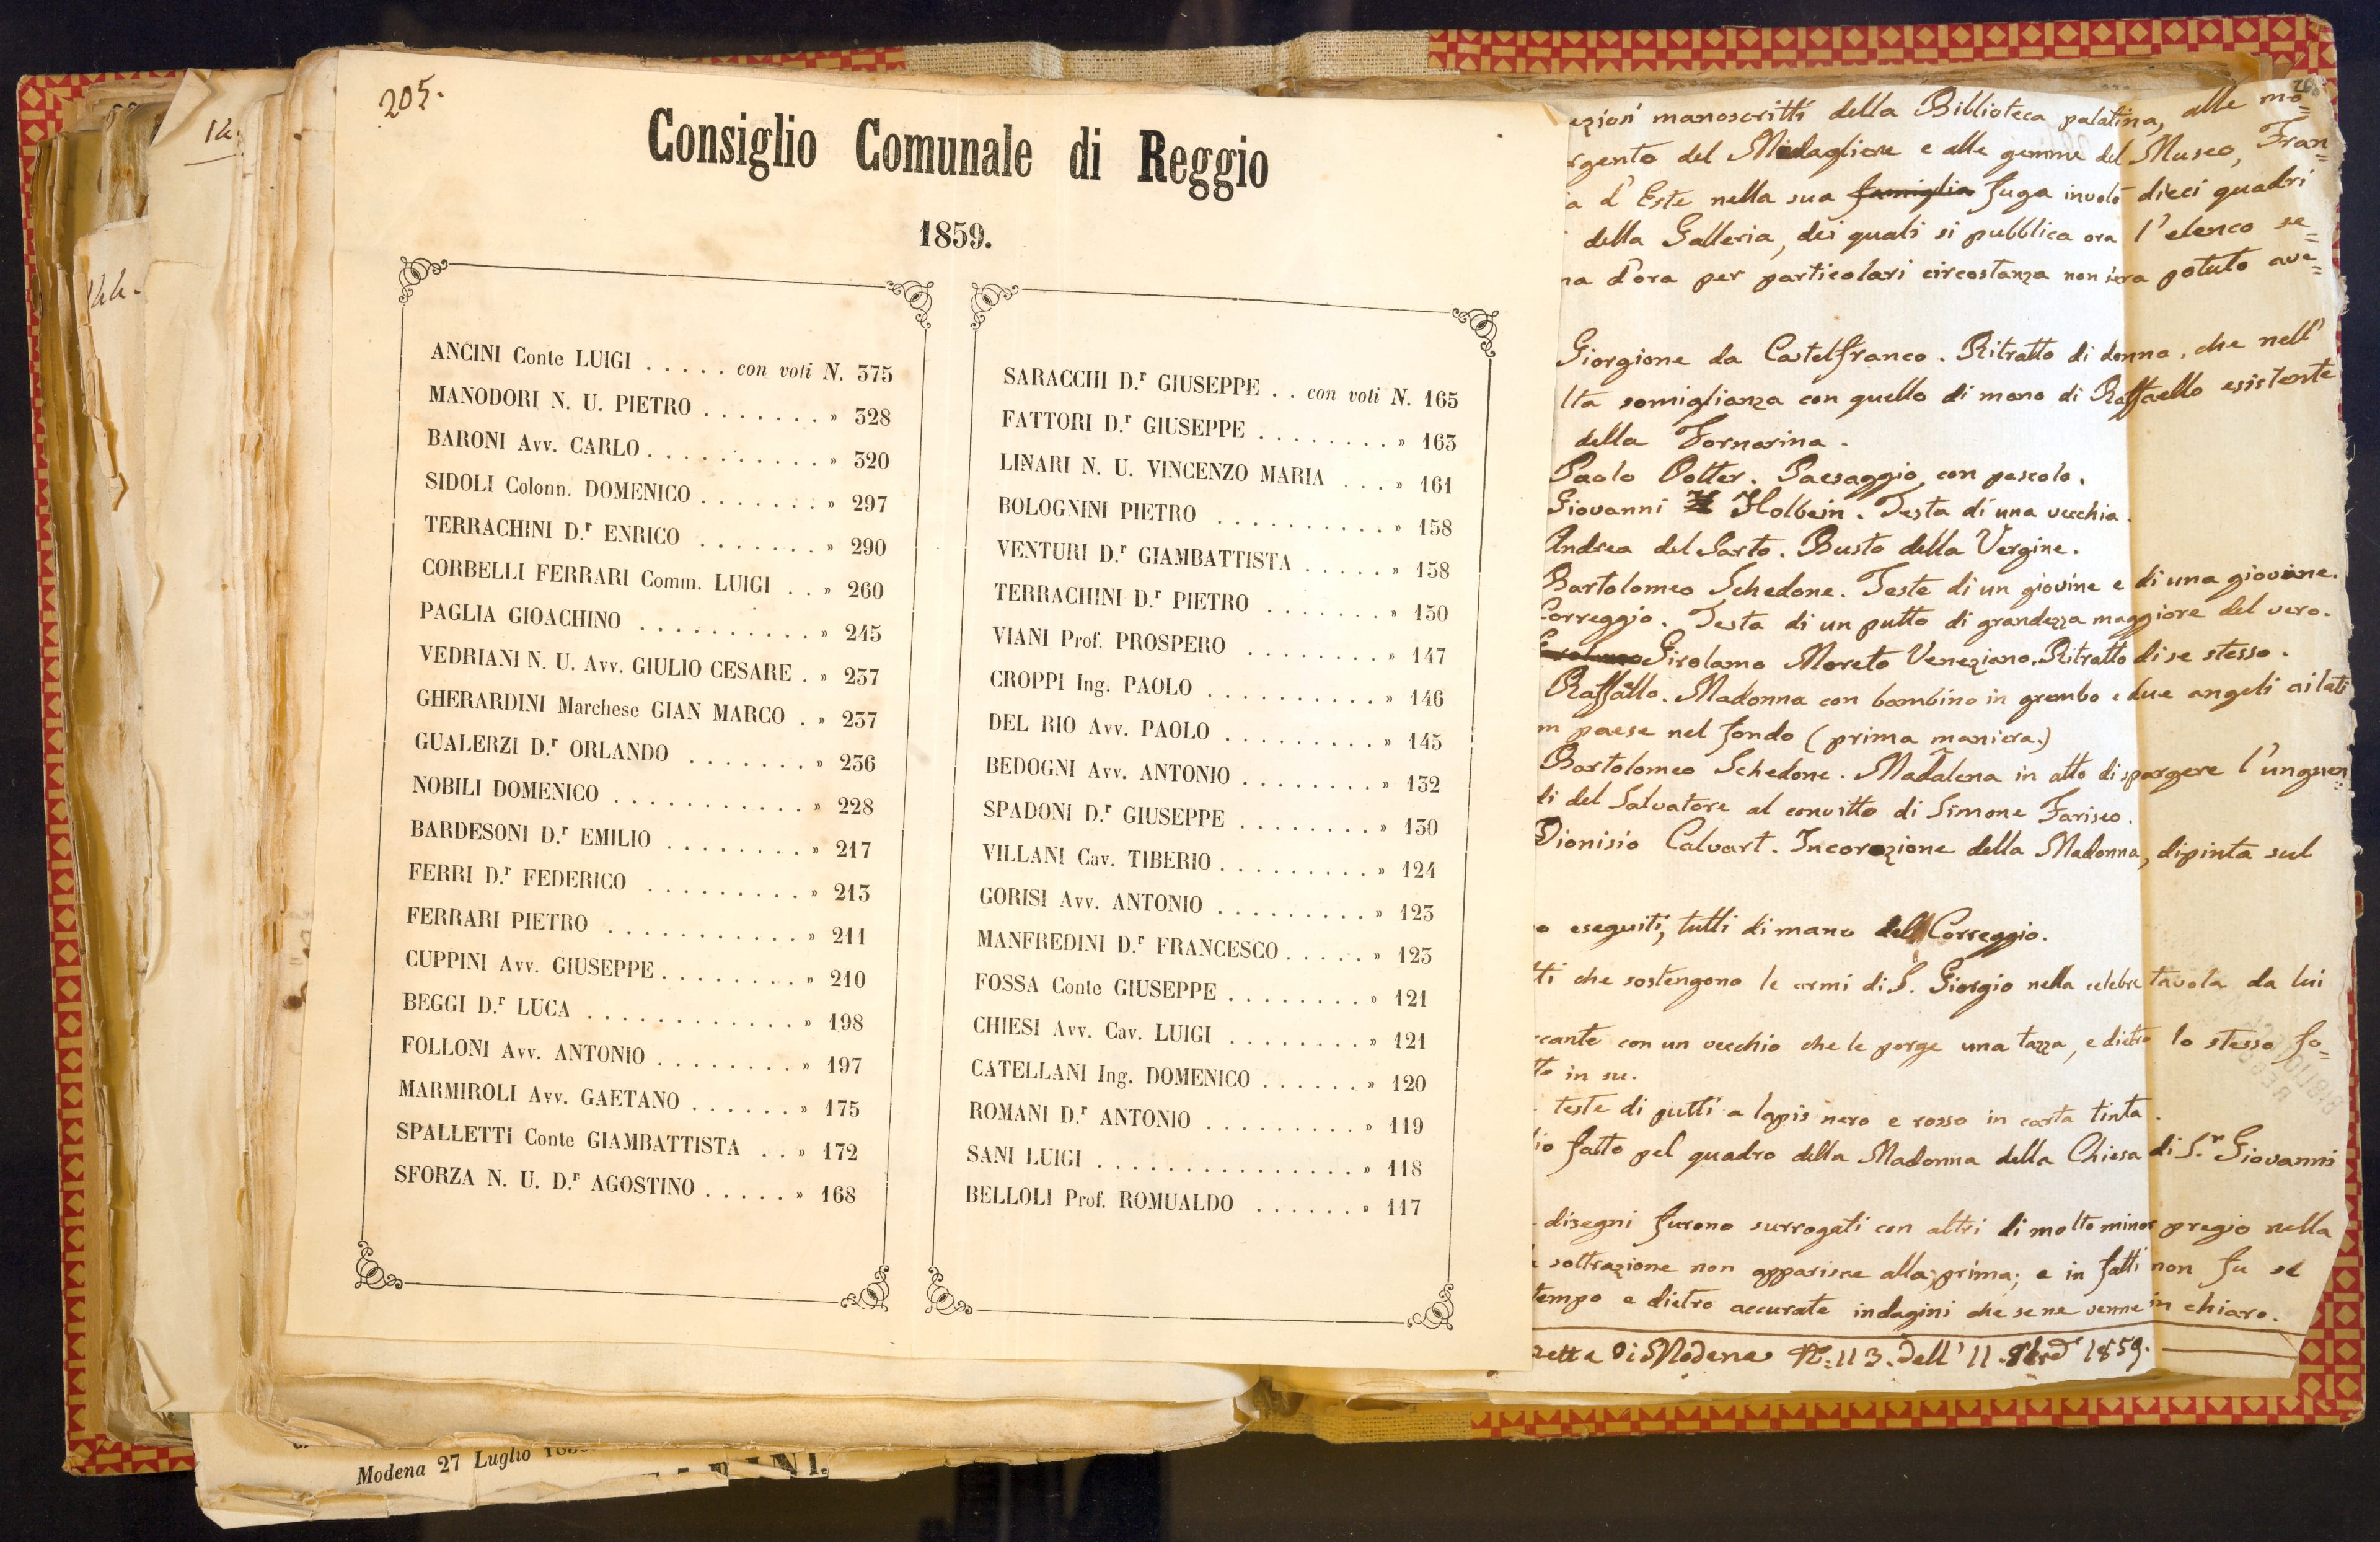 205.
Consiglio Comunale di Reggio
1859.
ANCINI Conte LUIGI . . . . . con voti N. 375
MANODORI N. U. PIETRO . . . . . . . » 328
BARONI Avv. CARLO . . . . . . . . . . » 320
SIDOLI Colonn. DOMENICO . . . . . . . » 297
TERRACHINI D.r ENRICO . . . . . . . » 290
CORBELLI FERRARI Comm. LUIGI . . » 260
PAGLIA GIOACHINO . . . . . . . . . . » 245
VEDRIANI N. U. Avv. GIULIO CESARE . » 237
GHERARDINI Marchese GIAN MARCO . » 237
GUALERZI D.r ORLANDO . . . . . . . » 236
NOBILI DOMENICO . . . . . . . . . . . . » 228
BARDESONI D.r EMILIO . . . . . . . . » 217
FERRI D.r FEDERICO . . . . . . . . . » 213
FERRARI PIETRO . . . . . . . . . . . » 211
CUPPINI Avv. GIUSEPPE . . . . . . . . » 210
BEGGI D.r LUCA . . . . . . . . . . . . . » 198
FOLLONI Avv. ANTONIO . . . . . . . . » 197
MARMIROLI Avv. GAETANO . . . . . . » 175
SPALLETTI Conte GIAMBATTISTA . . » 172
SFORZA N. U. D.r AGOSTINO . . . . . » 168
SARACCHI D.r GIUSEPPE . . con voti N. 165
FATTORI D.r GIUSEPPE . . . . . . . . » 163
LINARI N. U. VINCENZO MARIA . . . » 161
BOLOGNINI PIETRO . . . . . . . . . . . » 158
VENTURI D.r GIAMBATTISTA . . . . . » 158
TERRACHINI D.r PIETRO . . . . . . . » 150
VIANI Prof. PROSPERO . . . . . . . . » 147
CROPPI Ing. PAOLO . . . . . . . . . . . » 146
DEL RIO Avv. PAOLO . . . . . . . . . » 145
BEDOGNI Avv. ANTONIO . . . . . . . . » 132
SPADONI D.r GIUSEPPE . . . . . . . . » 130
VILLANI Cav. TIBERIO . . . . . . . . . » 124
GORISI Avv. ANTONIO . . . . . . . . . » 123
MANFREDINI D.r FRANCESCO . . . . . » 123
FOSSA Conte GIUSEPPE . . . . . . . . » 121
CHIESI Avv. Cav. LUIGI . . . . . . . . » 121
CATELLANI Ing. DOMENICO . . . . . . » 120
ROMANI D.r ANTONIO . . . . . . . . . » 119
SANI LUIGI . . . . . . . . . . . . . . . » 118
BELLOLI Prof. ROMUALDO . . . . . . » 117
eziosi manoscritti della Biblioteca palatina, alle mo=
rgento del Medagliere e alle gemme del Museo, Fran=
a d'Este nella sua famiglia fuga involò dieci quadri
della Galleria, dei quali si pubblica ora l'elenco se=
na d'ora per particolari circostanza non s'era potuto ave=
Giorgione da Castelfranco. Ritratto di donna, che nell'
lta somiglianza con quello di mano di Raffaello esistente
della Fornarina.
Paolo Potter. Paesaggio con pascolo.
Giovanni H Holbein. Testa di una vecchia.
Andrea del Sarto. Busto della Vergine.
Bartolomeo Schedone. Teste di un giovine e di una giovine.
Correggio. Testa di un putto di grandezza maggiore del vero.
Girolamo Moreto Veneziano. Ritratto di se stesso.
Raffaello. Madonna con bambino in grembo e due angeli ai lati
n paese nel fondo (prima maniera.)
Bartolomeo Schedone. Madalena in atto di spargere l'unguen=
di del Salvatore al convitto di Simone Fariseo.
Dionisio Calvart. Incorozione della Madonna, dipinta sul
o eseguiti, tutti di mano del Correggio.
tti che sostengono le armi di S. Giorgio nella celebre tavola da lui
ccante con un vecchio che le porge una tazza, e dietro lo stesso fo=
to in su.
teste di putti a lapis nero e rosso in carta tinta.
io fatto pel quadro della Madonna della Chiesa di S.n Giovanni
disegni furono surrogati con altri di molto minor pregio nella
soltrazione non apparisne alla prima; e in fatti non fu se
tempo e dietro accurate indagini che se ne venne in chiaro.
zetta di Modena N.: 113. dell' 11 1859.
Modena 27 Luglio